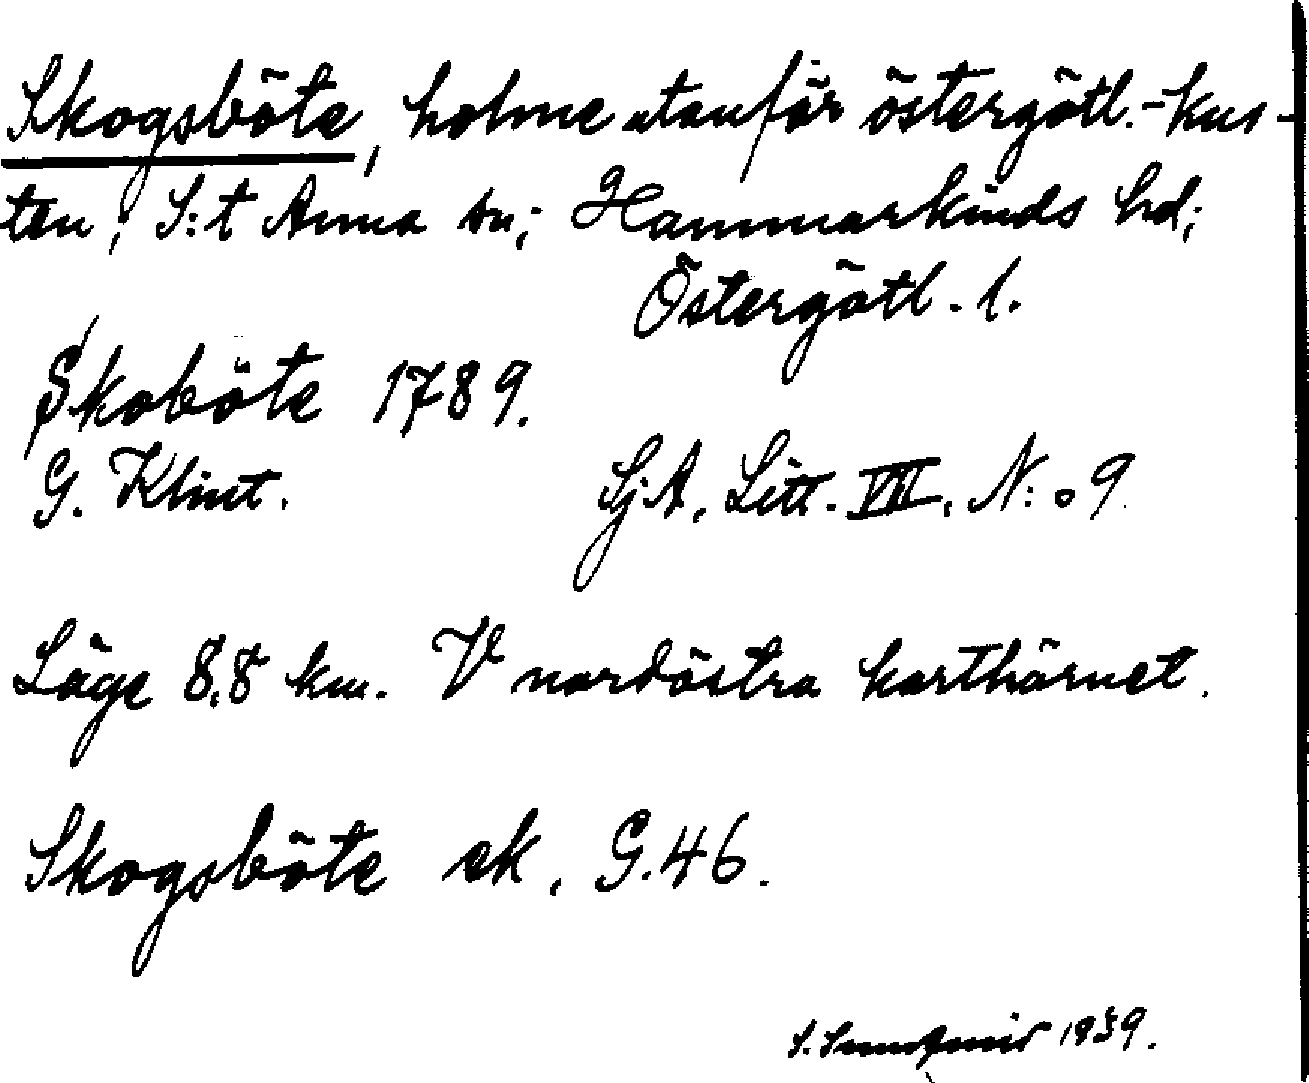 Skogsböte, holme utanför östergötl.-kus-
ten, S:t Anna sn; Hammarkinds hd;
Östergötl. l.
Skoböte 1789.
G. Klint. SjA, Litt. VIII, N:o 9.
Läge 8,8 km. V nordöstra karthörnet.
Skogsböte ek. G.46.
S. 1939.